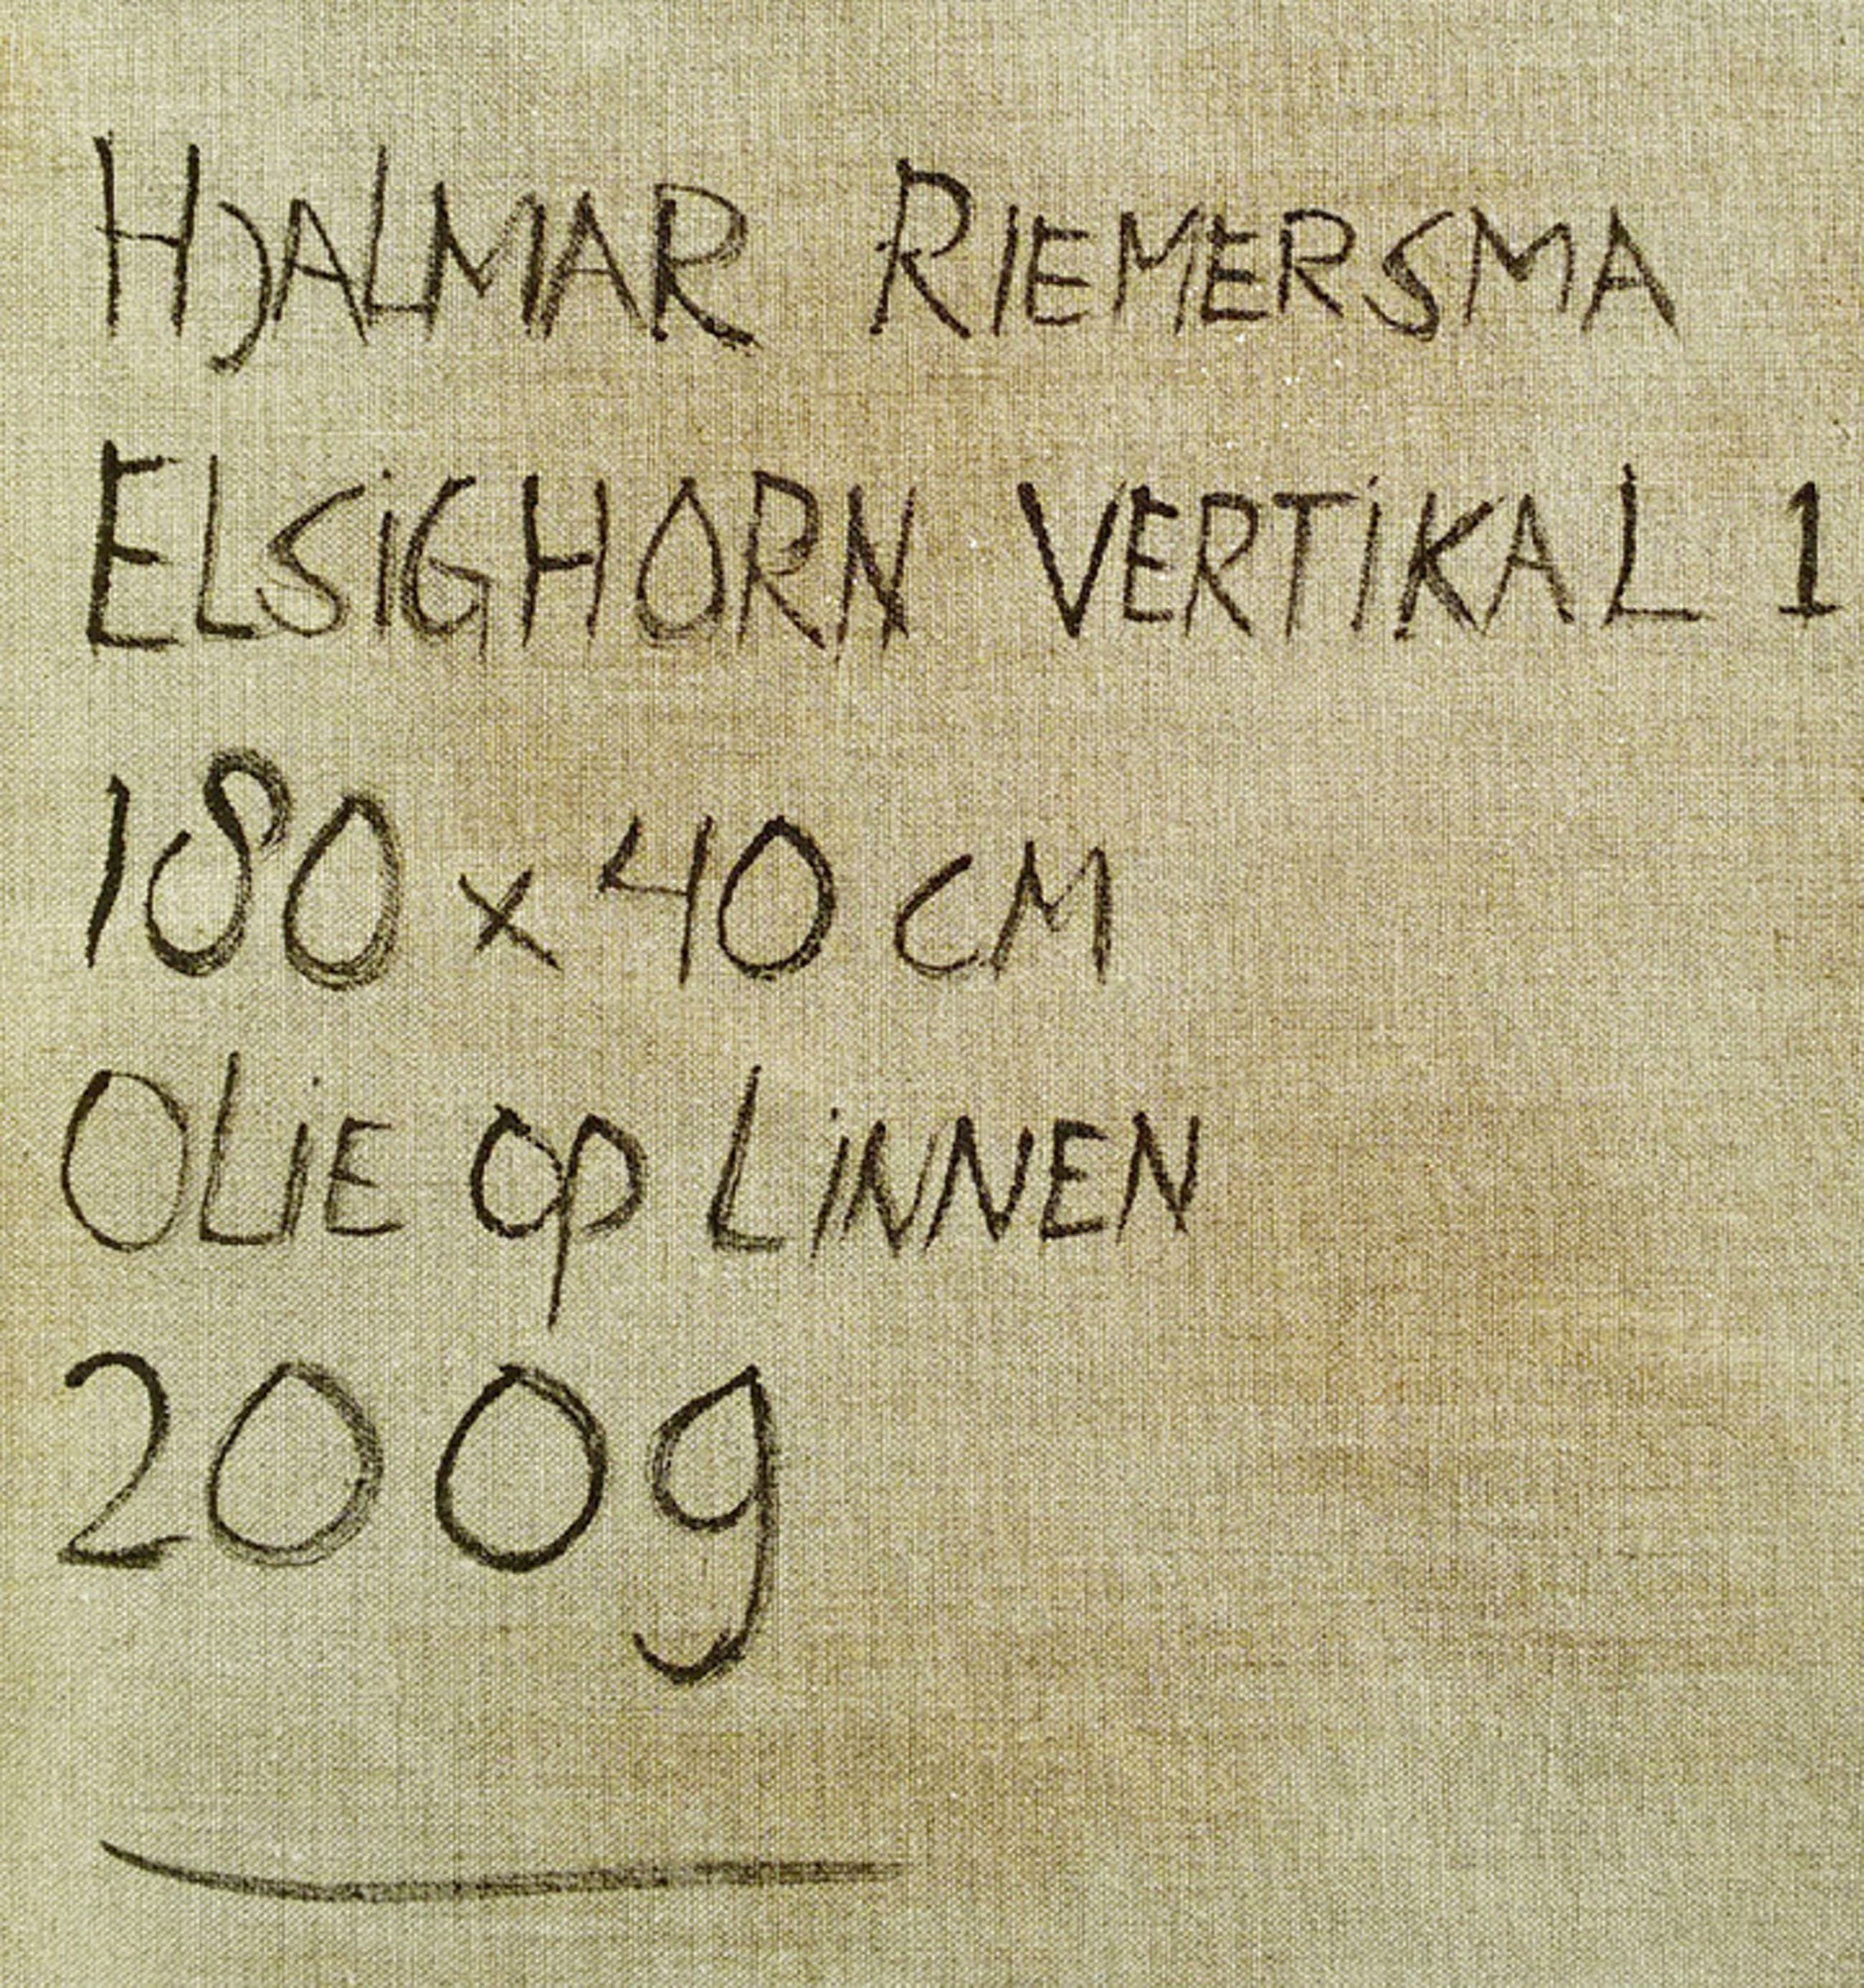 HJALMAR RIEMERSMA
ELSiGHORN VERTiKAL 1
180 x 40 CM
OLiE op LiNNEN
2009